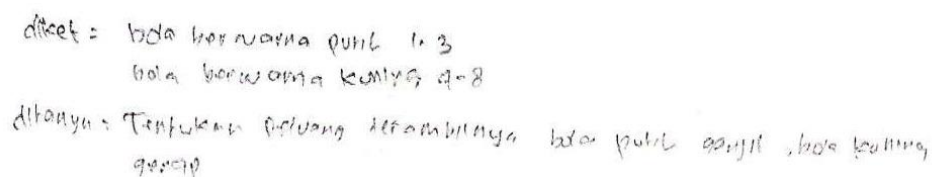 diket = bola berwarna putih 1-3
bola berwarna kuning 4-8
ditanya = Tentukan peluang terambilnya bola putih ganjil, bola kuning
genap